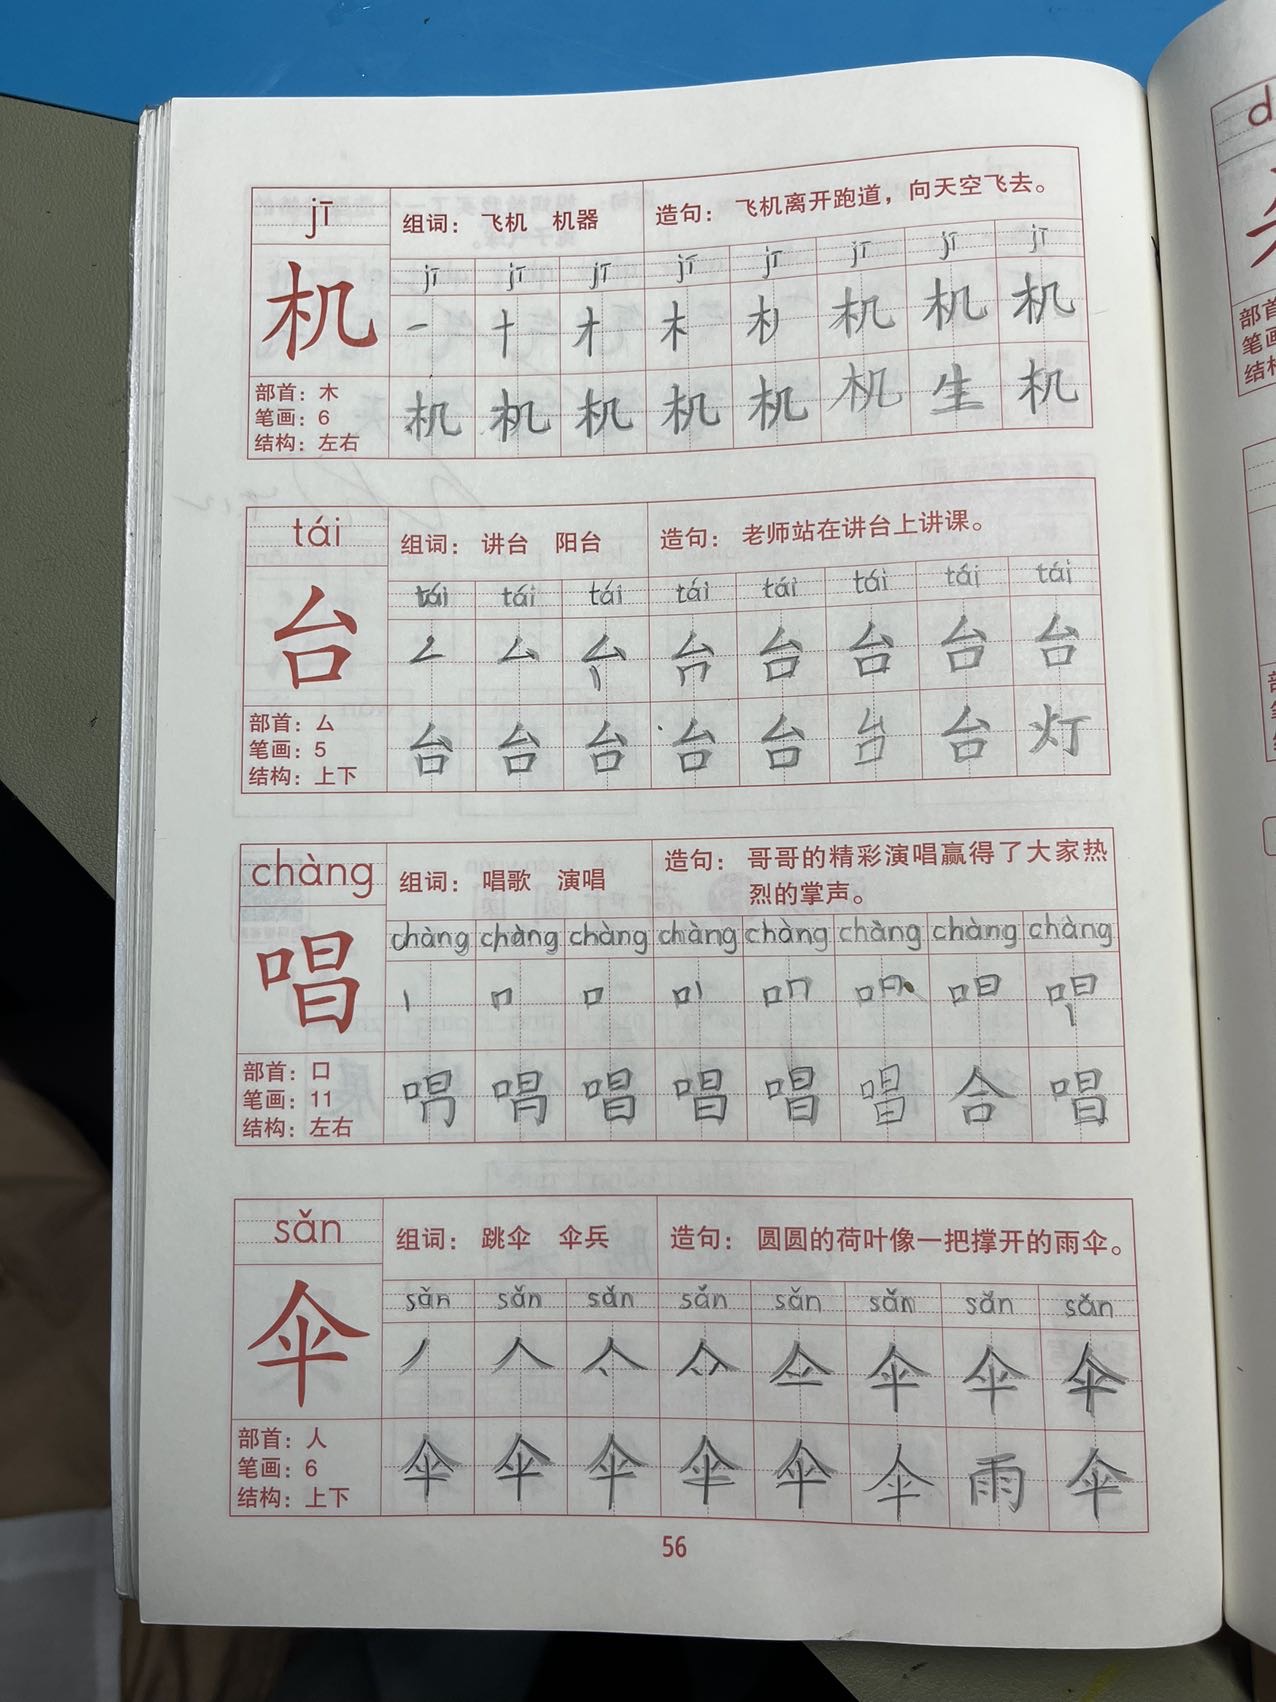 jī
组词： 飞机 机器 造句： 飞机离开跑道，向天空飞去。
jī jī jī jī jī jī jī jī
机
一 十 才 木 机 机 机
部首：木
笔画：6
结构：左右
机 机 机 机 机 机 生 机
tái
组词： 讲台 阳台 造句： 老师站在讲台上讲课。
tái tái tái tái tái tái tái tái
台
厶 台 台 台 台
部首：厶
笔画：5
结构：上下
台 台 台 台 台 台 台 灯
chàng
组词： 唱歌 演唱 造句： 哥哥的精彩演唱赢得了大家热
烈的掌声。
chàng chàng chàng chàng chàng chàng chàng chàng
唱
丨 口
部首：口
笔画：11
结构：左右
唱 唱 唱 唱 合 唱
sǎn
组词： 跳伞 伞兵 造句： 圆圆的荷叶像一把撑开的雨伞。
sǎn sǎn sǎn sǎn sǎn sǎn sǎn sǎn
伞
丿 人 伞 伞 伞
部首：人
笔画：6
结构：上下
伞 伞 伞 伞 伞 伞 雨 伞
56
部首
笔画